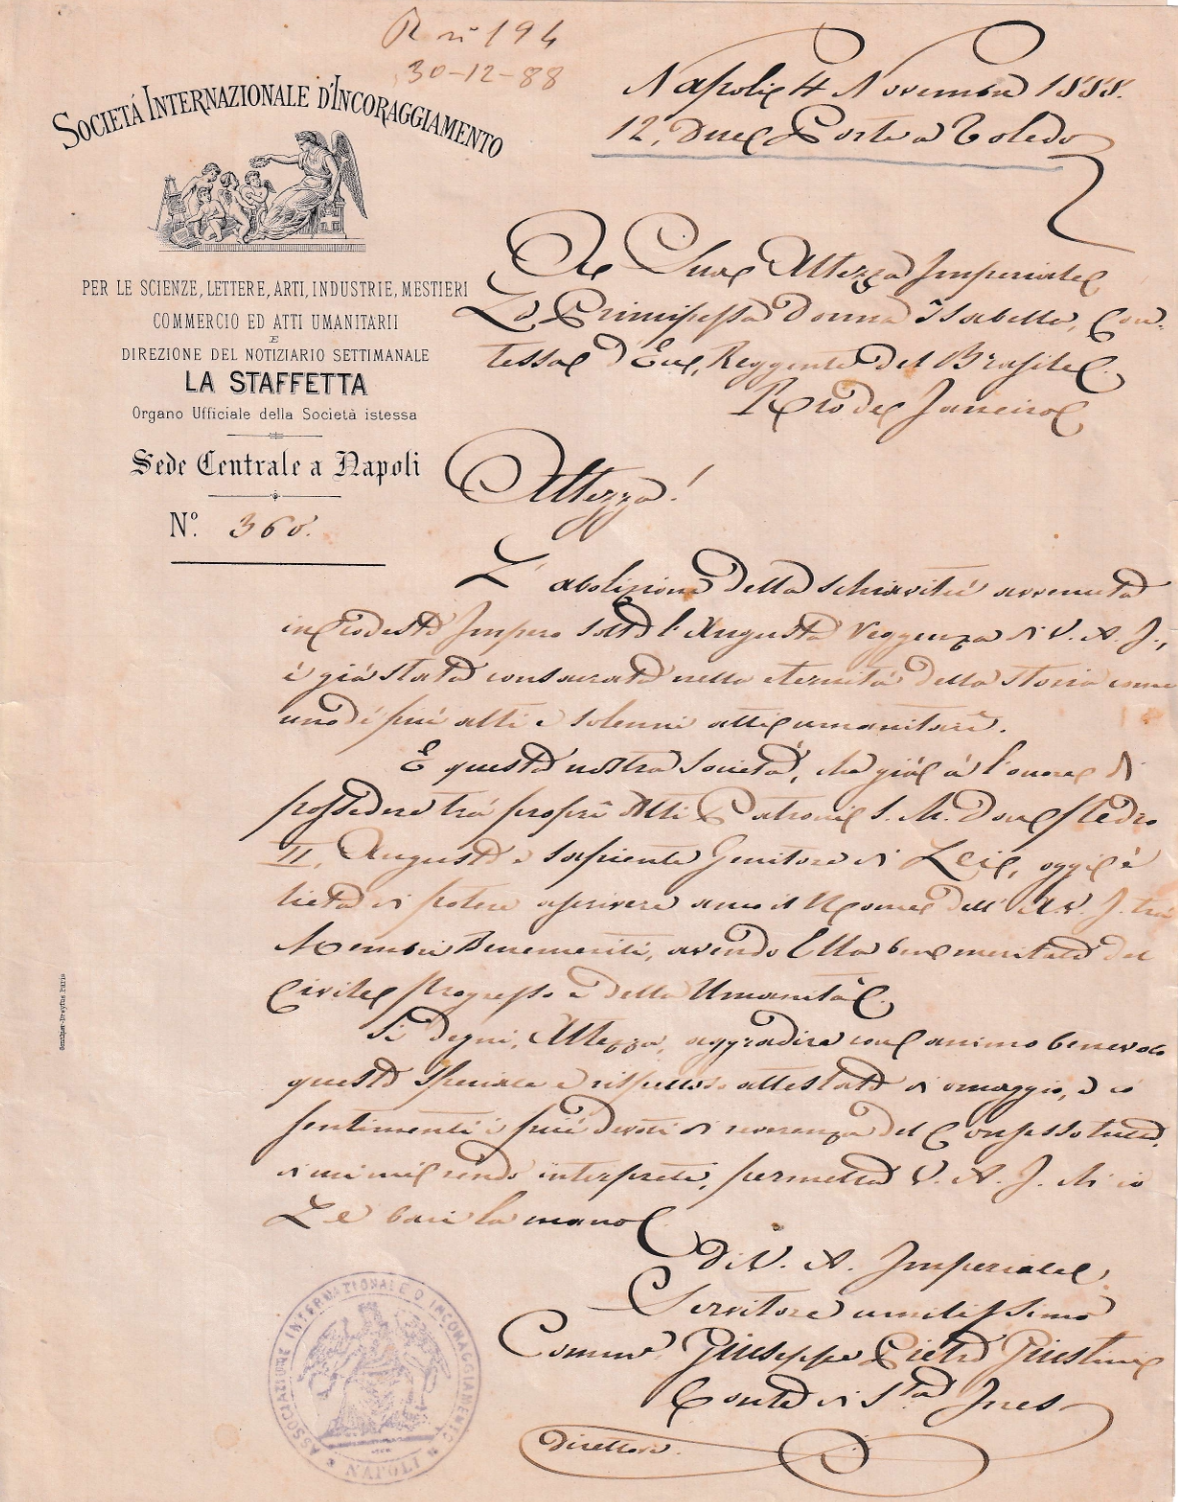 R. nº 194
30-12-88
SOCIETÁ INTERNAZIONALE D'INCORAGGIAMENTO
PER LE SCIENZE, LETTERE, ARTI, INDUSTRIE, MESTIERI
COMMERCIO ED ATTI UMANITARII
E
DIREZIONE DEL NOTIZIARIO SETTIMANALE
LA STAFFETTA
Organo Ufficiale della Società istessa
Sede Centrale a Napoli
Nº. 360.
Napoli 4 Novembre 1888.
12, Due Porte a Toledo
A Sua Altezza Imperiale
La Principessa Donna Isabella, Con-
tessa d'Eu, Reggente del Brasile
Rio de Janeiro
Altezza!
L'abolizione della schiavitù avvenuta
in codesto Impero sotto l'Augusta reggenza di V. A. I.,
è già stata consacrata nella eternità della storia come
uno de' più alti e solenni atti umanitarî.
E questa nostra Società, che già à l'onore di
possedere tra' proprî Alti Patroni S. M. Don Pedro
II, Augusto e sapiente Genitore di Lei, oggi è
lieta di potere ascrivere anco il Nome dell'A. V. I. tra'
Membri Benemeriti, avendo Ella ben meritato del
Civile progresso e della Umanità.
Si degni, Altezza, aggradire con animo benevolo
questo speciale e rispettoso attestato di omaggio, e co'
sentimenti i più devoti di reverenza del Consesso tutto,
di cui mi rendo interprete, permetta V. A. I. ch'io
Le baci la mano
Di V. A. Imperiale
Servitore umilissimo
Comm.e Giuseppe Pietro Giustini
Conte di S.ta Ines
Direttore.
ASSOCIAZIONE INTERNAZIONALE D'INCORAGGIAMENTO
NAPOLI